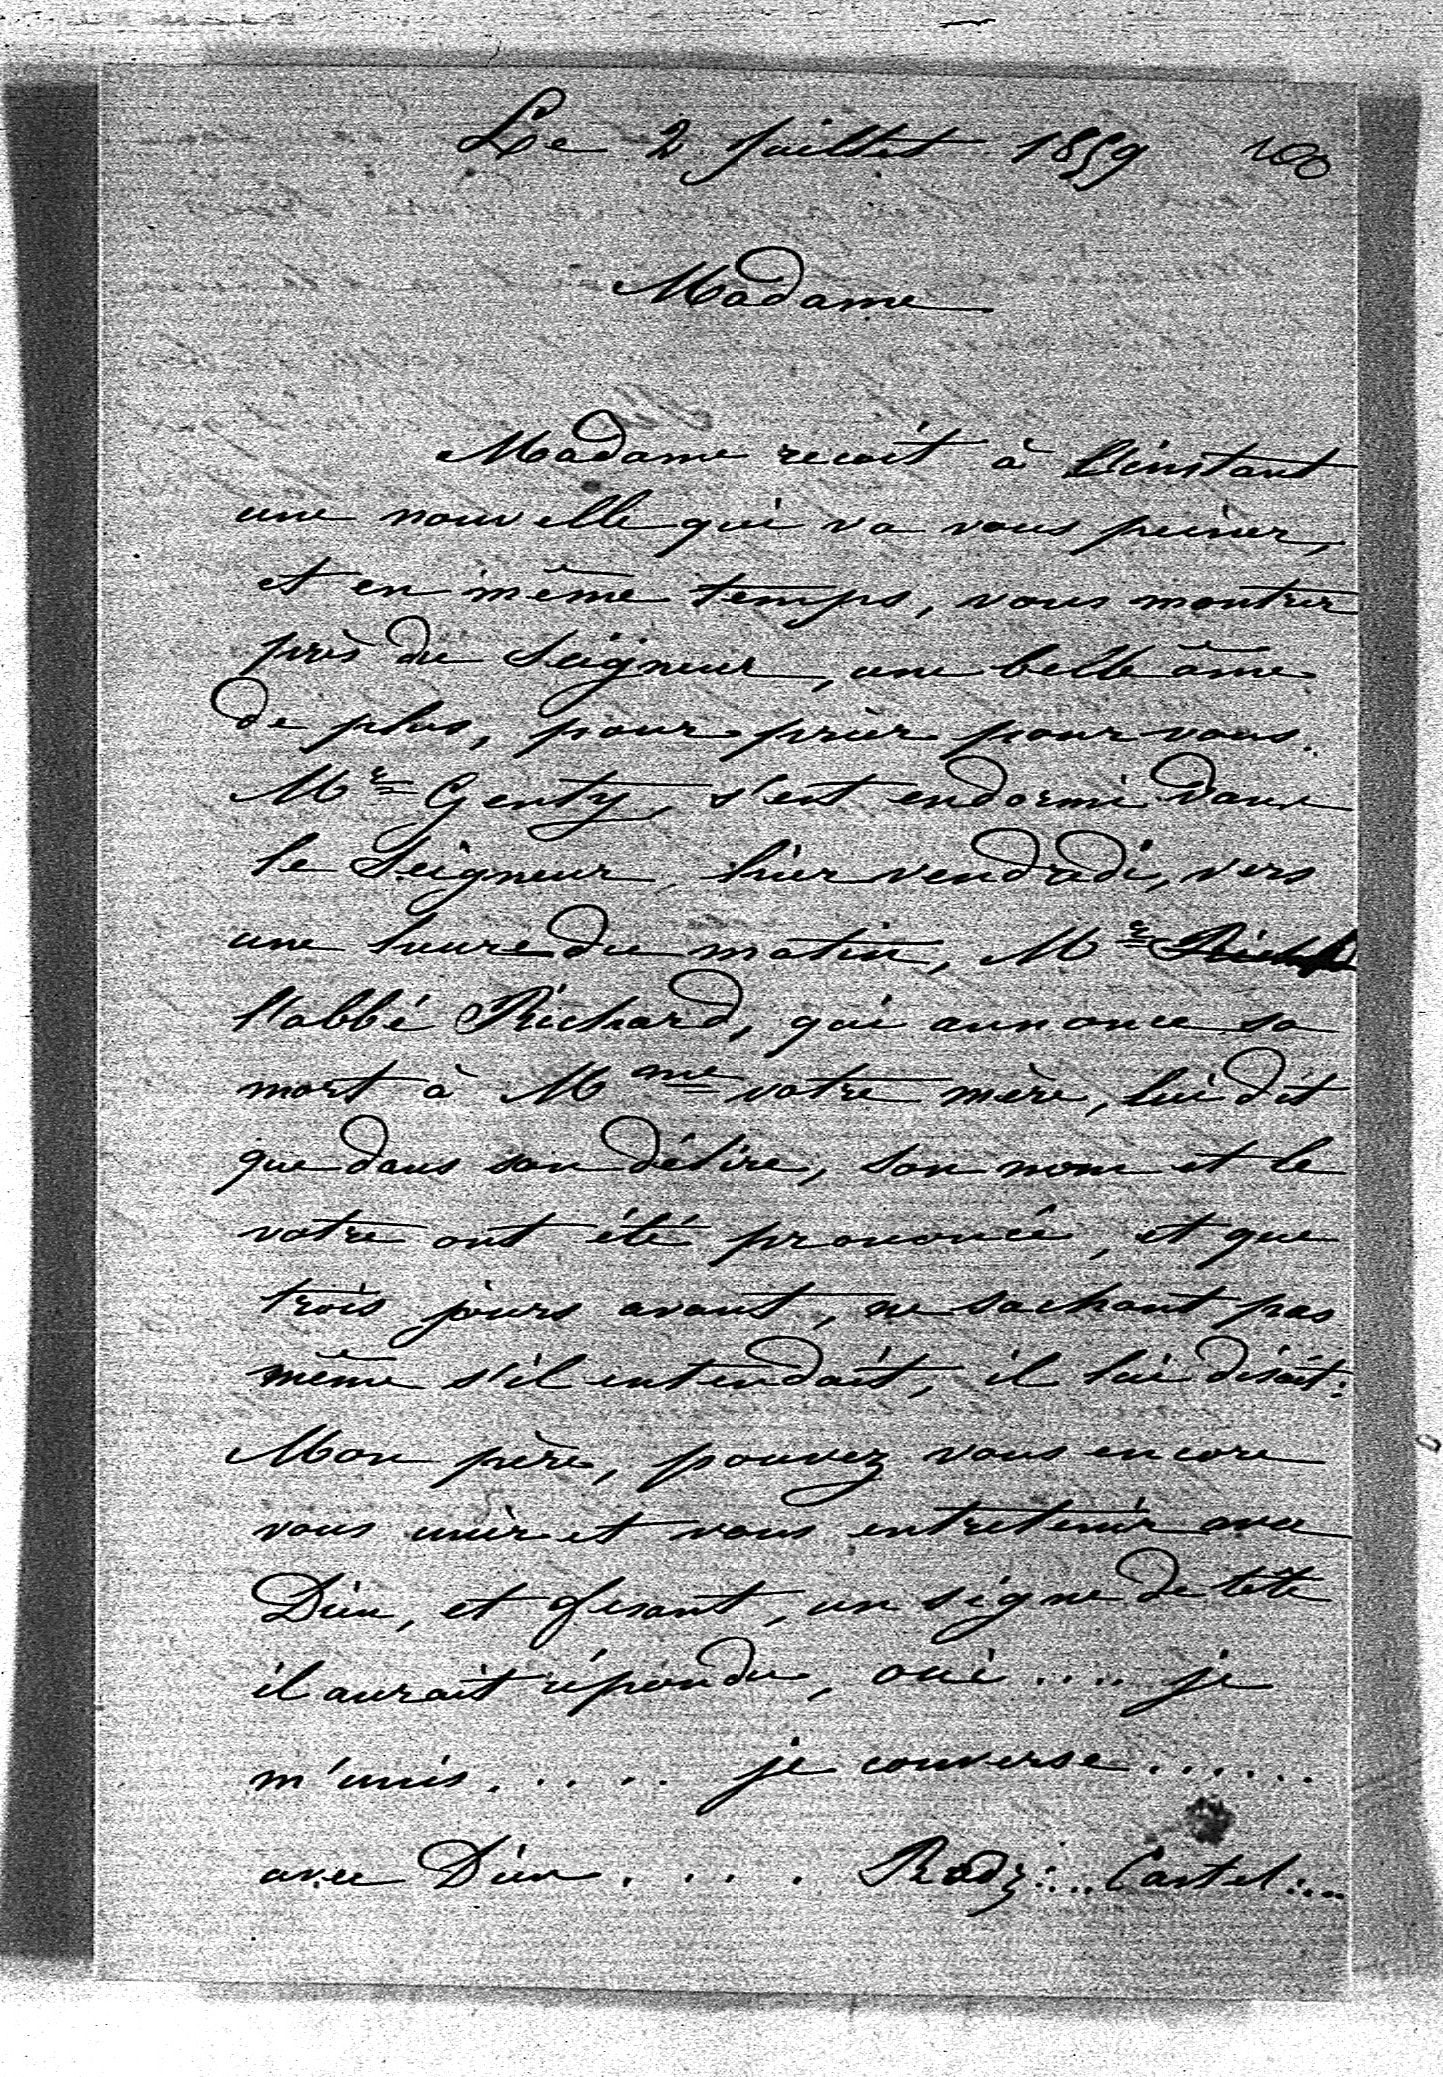 Le 2 juillet 1859 100
Madame
Madame recoit à l'instant
une nouvelle qui va vous peiner,
et en même temps, vous montrer
près du Seigneur, une belle âme
de plus, pour prier pour vous.
Mr Genty, s'est endormi dans
le Seigneur, hier vendredi, vers
une heure du matin, Mr
l'abbé Richard, qui annonce sa
mort à Mme votre mère, lui dit
que dans son délire, son nom et le
votre ont été prononcé, et que
trois jours avant, ne sachant pas
même s'il entendait, il lui disait:
Mon père, pouvez vous encore
vous unir et vous entretenir avec
Dieu, et fesant, un signe de tête
il aurait répondu, oui .... je
m'unis..... je converse......
avec Dieu.... Radz:... Castel:...